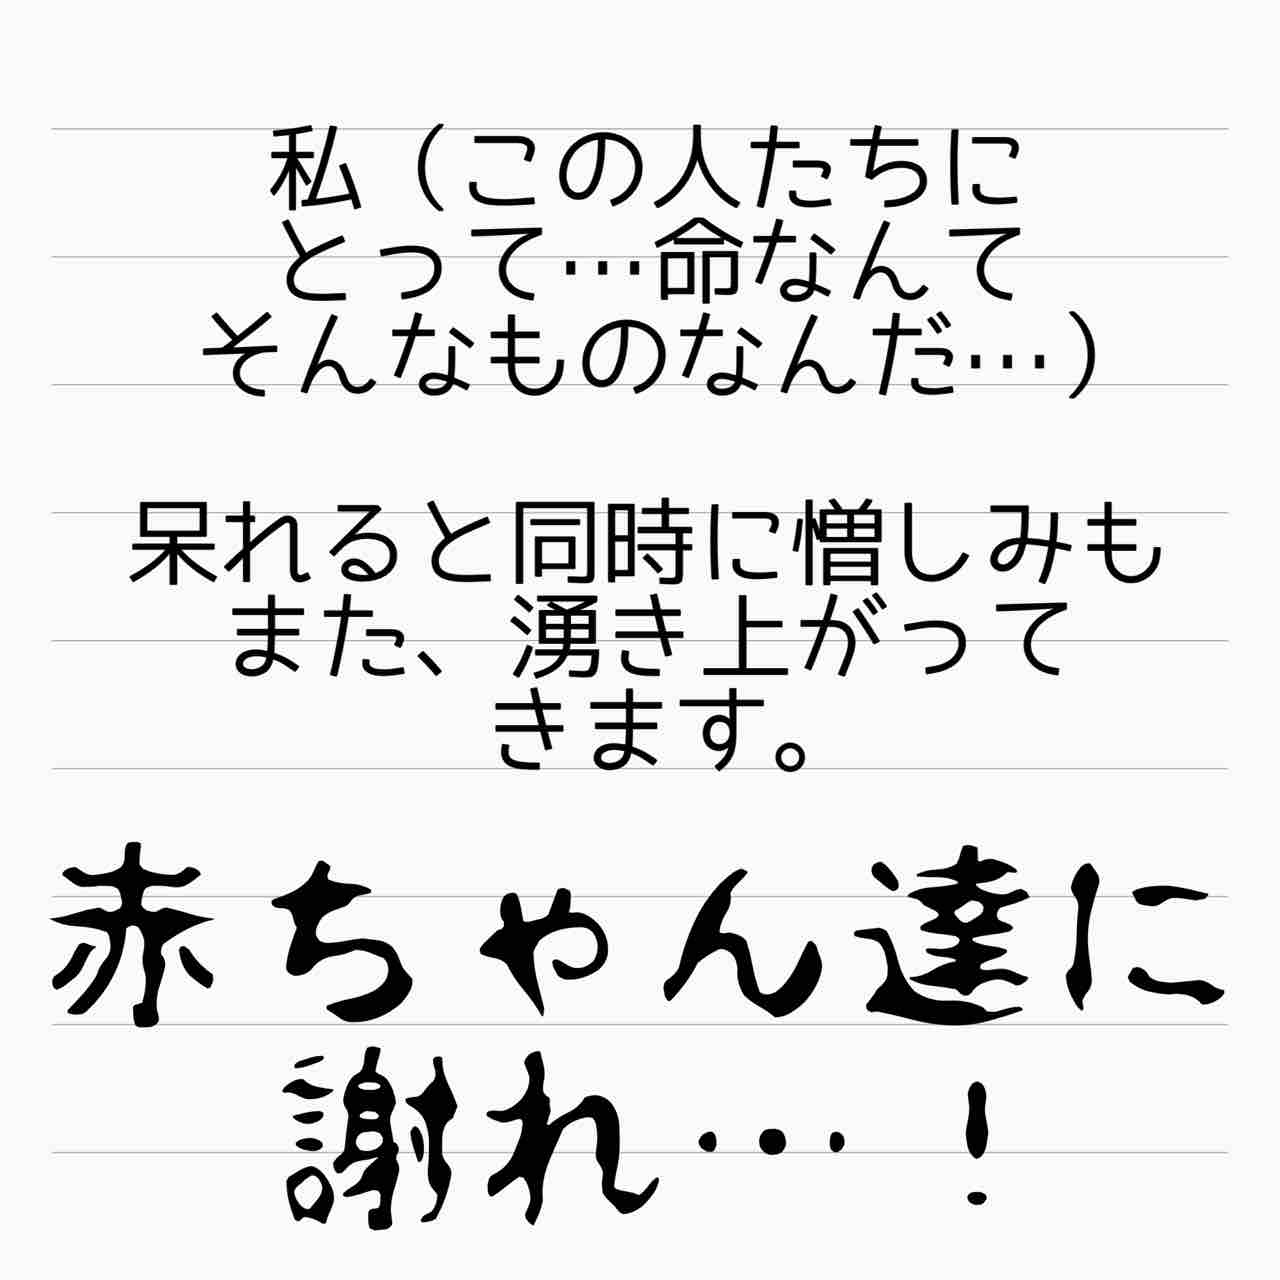 私（この人たちに
とって…命なんて
そんなものなんだ…）
呆れると同時に憎しみも
また、湧き上がって
きます。
赤ちゃん達に
謝れ…！